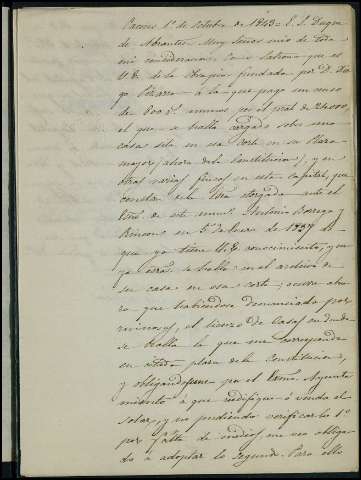 Caceres 1º de Octubre de 1843 = E. S. Duque
de Abrantes = Muy Señor mio de toda
mi consideracion: Como Patrono que es
V.E. de la Obra pia fundada por D. Die
go Pizarro á la que pago un censo
de 600 rs. annuos por el pral de 20.000,
el que se halla cargado sobre una
casa sita en esa corte en su Plaza
mayor, ahora de la Constitucion, y en
otras varias fincas en esta Capital, que
constan de la Esra otorgada ante el
Esno. de este numo. Antonio Borrega y
Rincon en 5 de Enero de 1837 de
que ya tiene V.E. conocimiento, y cu
ya esra. se halla en el archivo de
su casa en esa corte; ocurre aho
ra que habiendose denunciado por
ruinosas, el lienzo de Casas en donde
se halla la que me corresponde
en citada plaza de la Constitucion,
y obligandoseme por el Exmo. Ayunta
miento á que reedifique ó venda el
solar, y no pudiendo verificar lo 1º
por falta de medios me veo obliga
do á adoptar lo segundo. Para ello